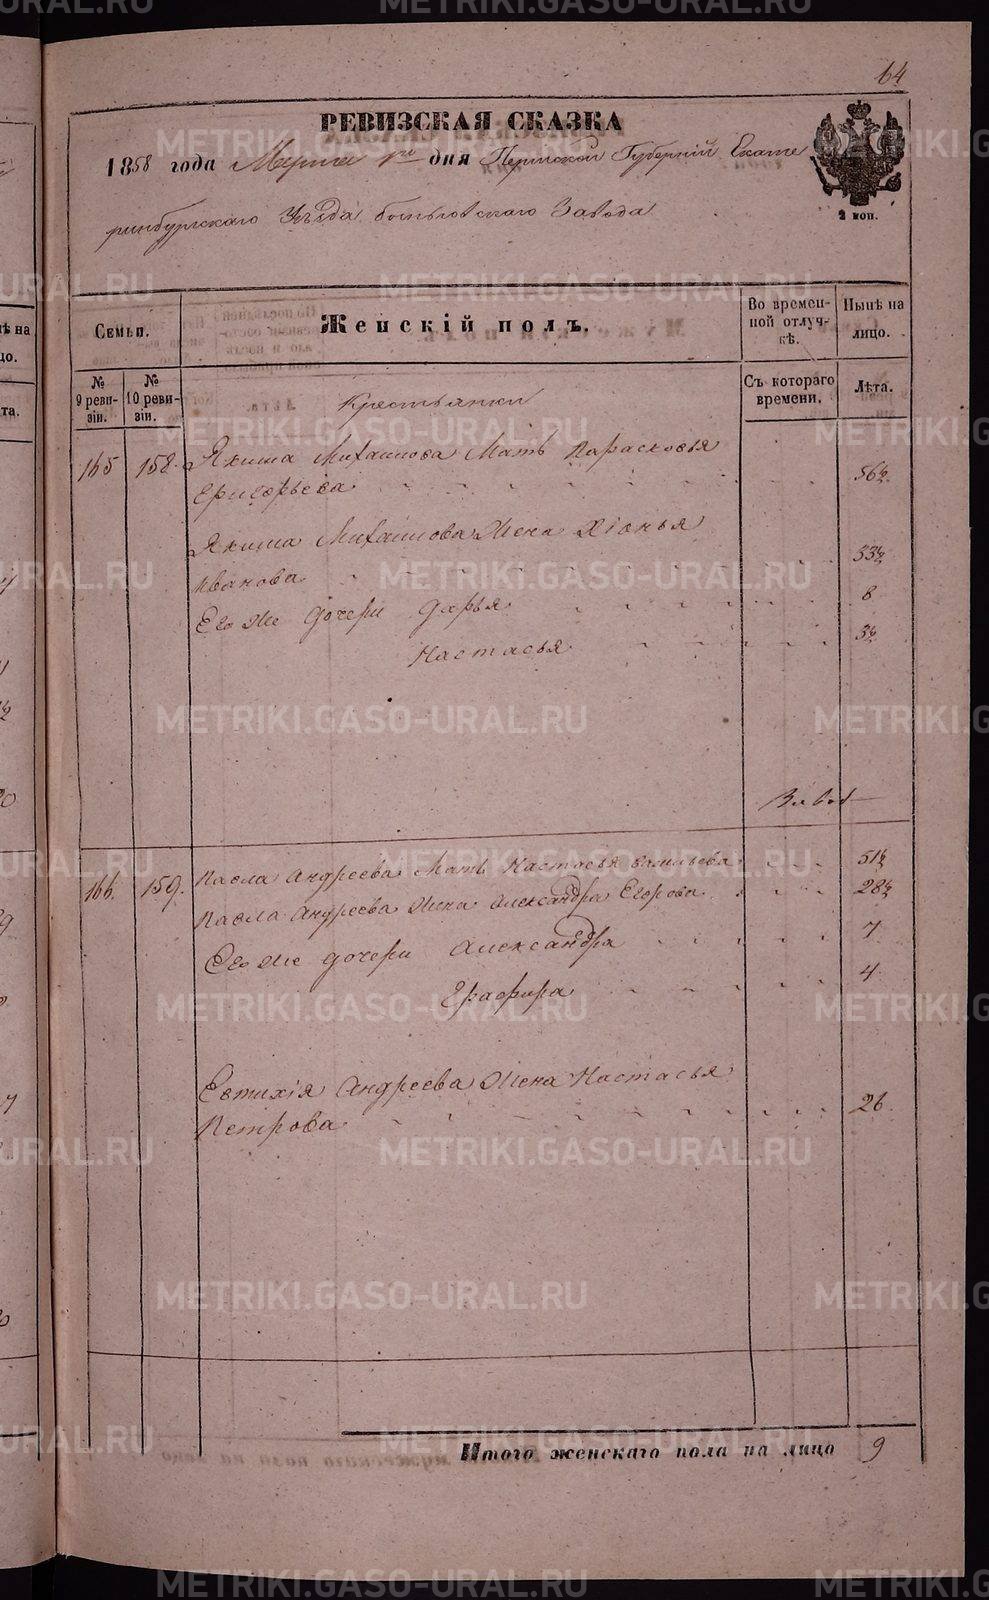 64
РЕВИЗСКАЯ СКАЗКА
1858 года Марта 1го дня Пермской Губернiи Екате
ринбургскаго Уѣзда Завода
2 коп.
Семьи.
Женскiй полъ.
Во времен-
ной отлуч-
кѣ.
Нынѣ на
лицо.
№
9 реви-
зiи.
№
10 реви-
зiи.
Съ котораго
времени.
Лѣта.
Крестьянки
165 158. Якима Михаилова Мать Парасковья
Григорьева 56½
Якима Михаилова Жена Хiонья
Иванова 53½
Его же дочери Дарья 8
Настасья 3½
166. 159. Павла Андреева Мать Настасья Васильева 51½
Павла Андреева Жена Александра Егорова 28½
Его же дочери Александра 7
Глафира 4
Евтихiя Андреева Жена Настасья
Петрова 26.
Итого женскаго пола на лицо 9
METRIKI.GASO-URAL.RU